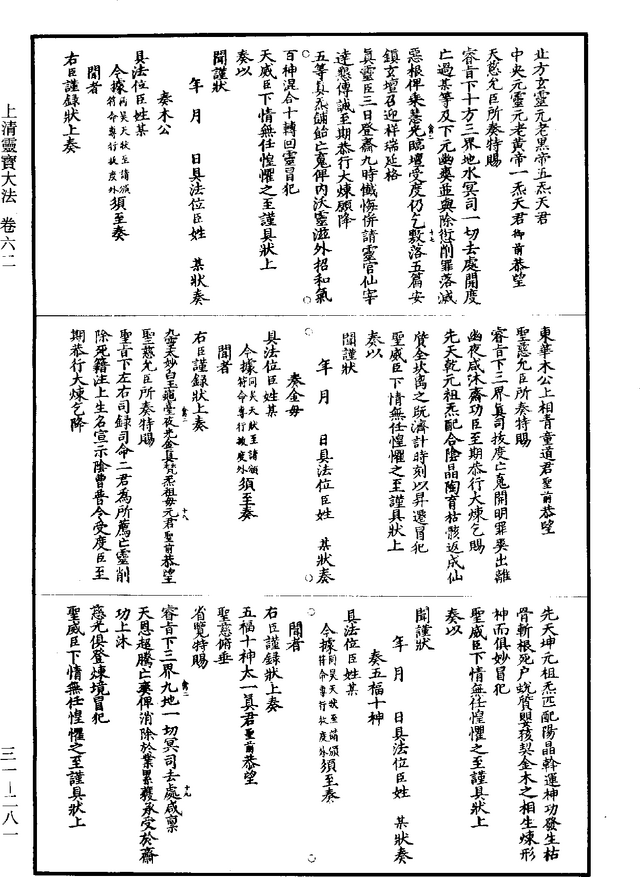 北方玄靈元老黑帝五炁天君
中央元靈元老黃帝一炁天君御前恭望
天慈允臣所奏特賜
睿旨下十方三界地水冥司一切去處開度
亡過某等及下元幽爽並與除愆削罪落滅
惡根俾乘慧光臨壇受度仍乞敷落五篇安
鎮玄壇召迎祥瑞延格
真靈臣三日登齋九時懺悔併請靈官仙宰
達懇傳誠至期恭行大煉願降
五等真炁餔飴亡䰟俾內沃靈滋外招和氣
百神混合十轉回靈冒犯
天威臣下情無任惶懼之至謹具狀上
奏以
聞謹狀
年 月 日具法位臣姓 某狀奏
奏木公
具法位臣姓某
令據同昊天狀至請頒符命專行拔度外須至奏
聞者
右臣謹錄狀上奏
東華木公上相青童道君聖前恭望
聖慈允臣所奏特賜
睿旨下三界真司拔度亡䰟開明罪業出離
幽夜咸沐齋功臣至期恭行大煉乞賜
先天乾元祖炁配合陰晶陶育枯骸返成仙
質金扶离之既濟計時刻以昇遷冒犯
聖威臣下情無任惶懼之至謹具狀上
奏以
聞謹狀
年 月 日具法位臣姓 某狀奏
奏金母
具法位臣姓某
令據同昊天狀至請頒符命專行拔度外須至奏
聞者
右臣謹錄狀上奏
九靈太妙白玉龜臺夜光金真梵炁祖母元君聖前恭望
聖慈允臣所奏特賜
聖旨下左右司錄司命二君為所薦亡靈削
除死籍注上生名宣示陰曹普令受度臣至
期恭行大煉乞降
先天坤元祖炁匹配陽晶幹運神功發生枯
骨斬根死户蛻質嬰孩契金木之相生煉形
神而俱妙冒犯
聖威臣下情無任惶懼之至謹具狀上
奏以
聞謹狀
年 月 日具法位臣姓 某狀奏
奏五福十神
具法位臣姓某
令據同昊天狀至請頒符命專行拔度外須至奏
聞者
右臣謹錄狀上奏
五福十神太一真君聖前恭望
聖慈俯垂
省覽特賜
睿旨下三界九地一切冥司去處咸稟
天恩超騰亡爽俾消除於業累獲承受於齋
功上沐
慈光俱登煉境冒犯
聖威臣下情無任惶懼之至謹具狀上
上清靈寶大法 卷六二
三一—二八一